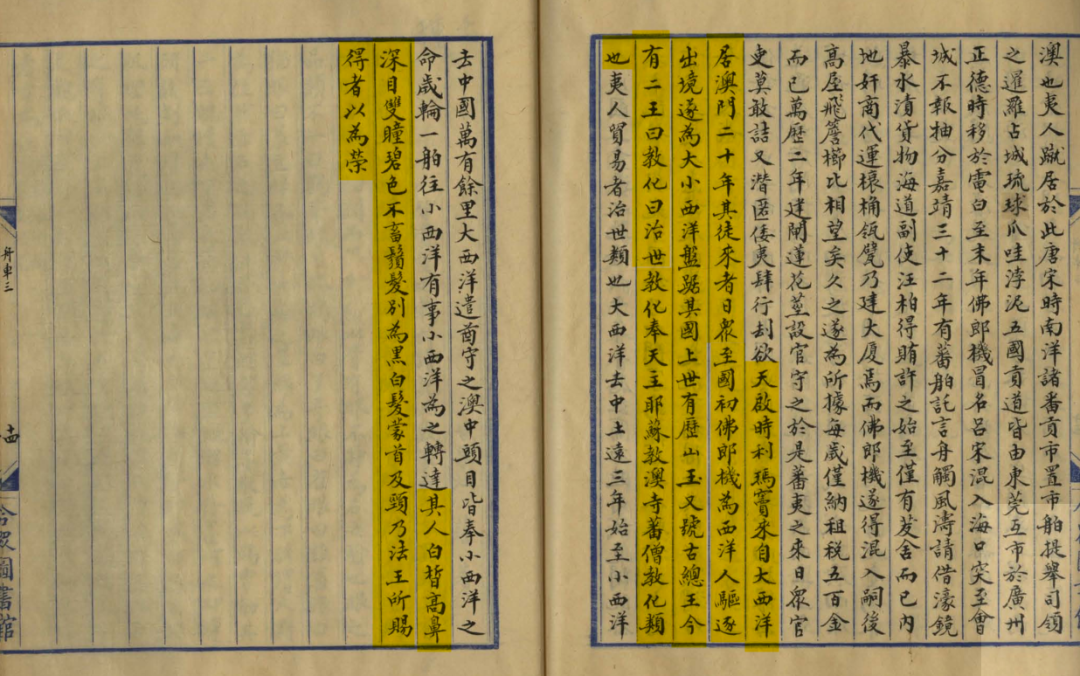 澳也夷人蹴居於此唐宋時南洋諸番貢市置市舶提舉司領
之暹羅占城琉球爪哇浡泥五國貢道皆由東莞互市於廣州
正德時移於電白至末年佛郎機冒名呂宋混入海口突至會
城不報抽分嘉靖三十二年有蕃舶託言舟觸風濤請借濠鏡
暴水漬貨物海道副使汪柏得賄許之始至僅有茇舍而已內
地奸商代運榱桷瓴甓乃建大厦焉而佛郎機遂得混入嗣後
高屋飛簷櫛比相望矣久之遂為所據每歲僅納租稅五百金
而已萬歷二年建閘蓮花莖設官守之於是蕃夷之來日眾官
吏莫敢詰又潛匿倭夷肆行刦欲天啟時利瑪竇來自大西洋
居澳門二十年其徒來者日眾至國初佛郎機為西洋人驅逐
出境遂為大小西洋盤踞其國上世有歷山王又號古總王今
有二王曰教化曰治世教化奉天主耶蘇教澳寺蕃僧教化類
也夷人貿易者治世類也大西洋去中土遠三年始至小西洋
去中國萬有餘里大西洋遣酋守之澳中頭目皆奉小西洋之
命歲輪一舶往小西洋有事小西洋為之轉達其人白皙高鼻
深目雙瞳碧色不畜鬚髮別為黑白髮蒙首及頸乃法王所賜
得者以為榮
舟車三
十四
合眾圖書館